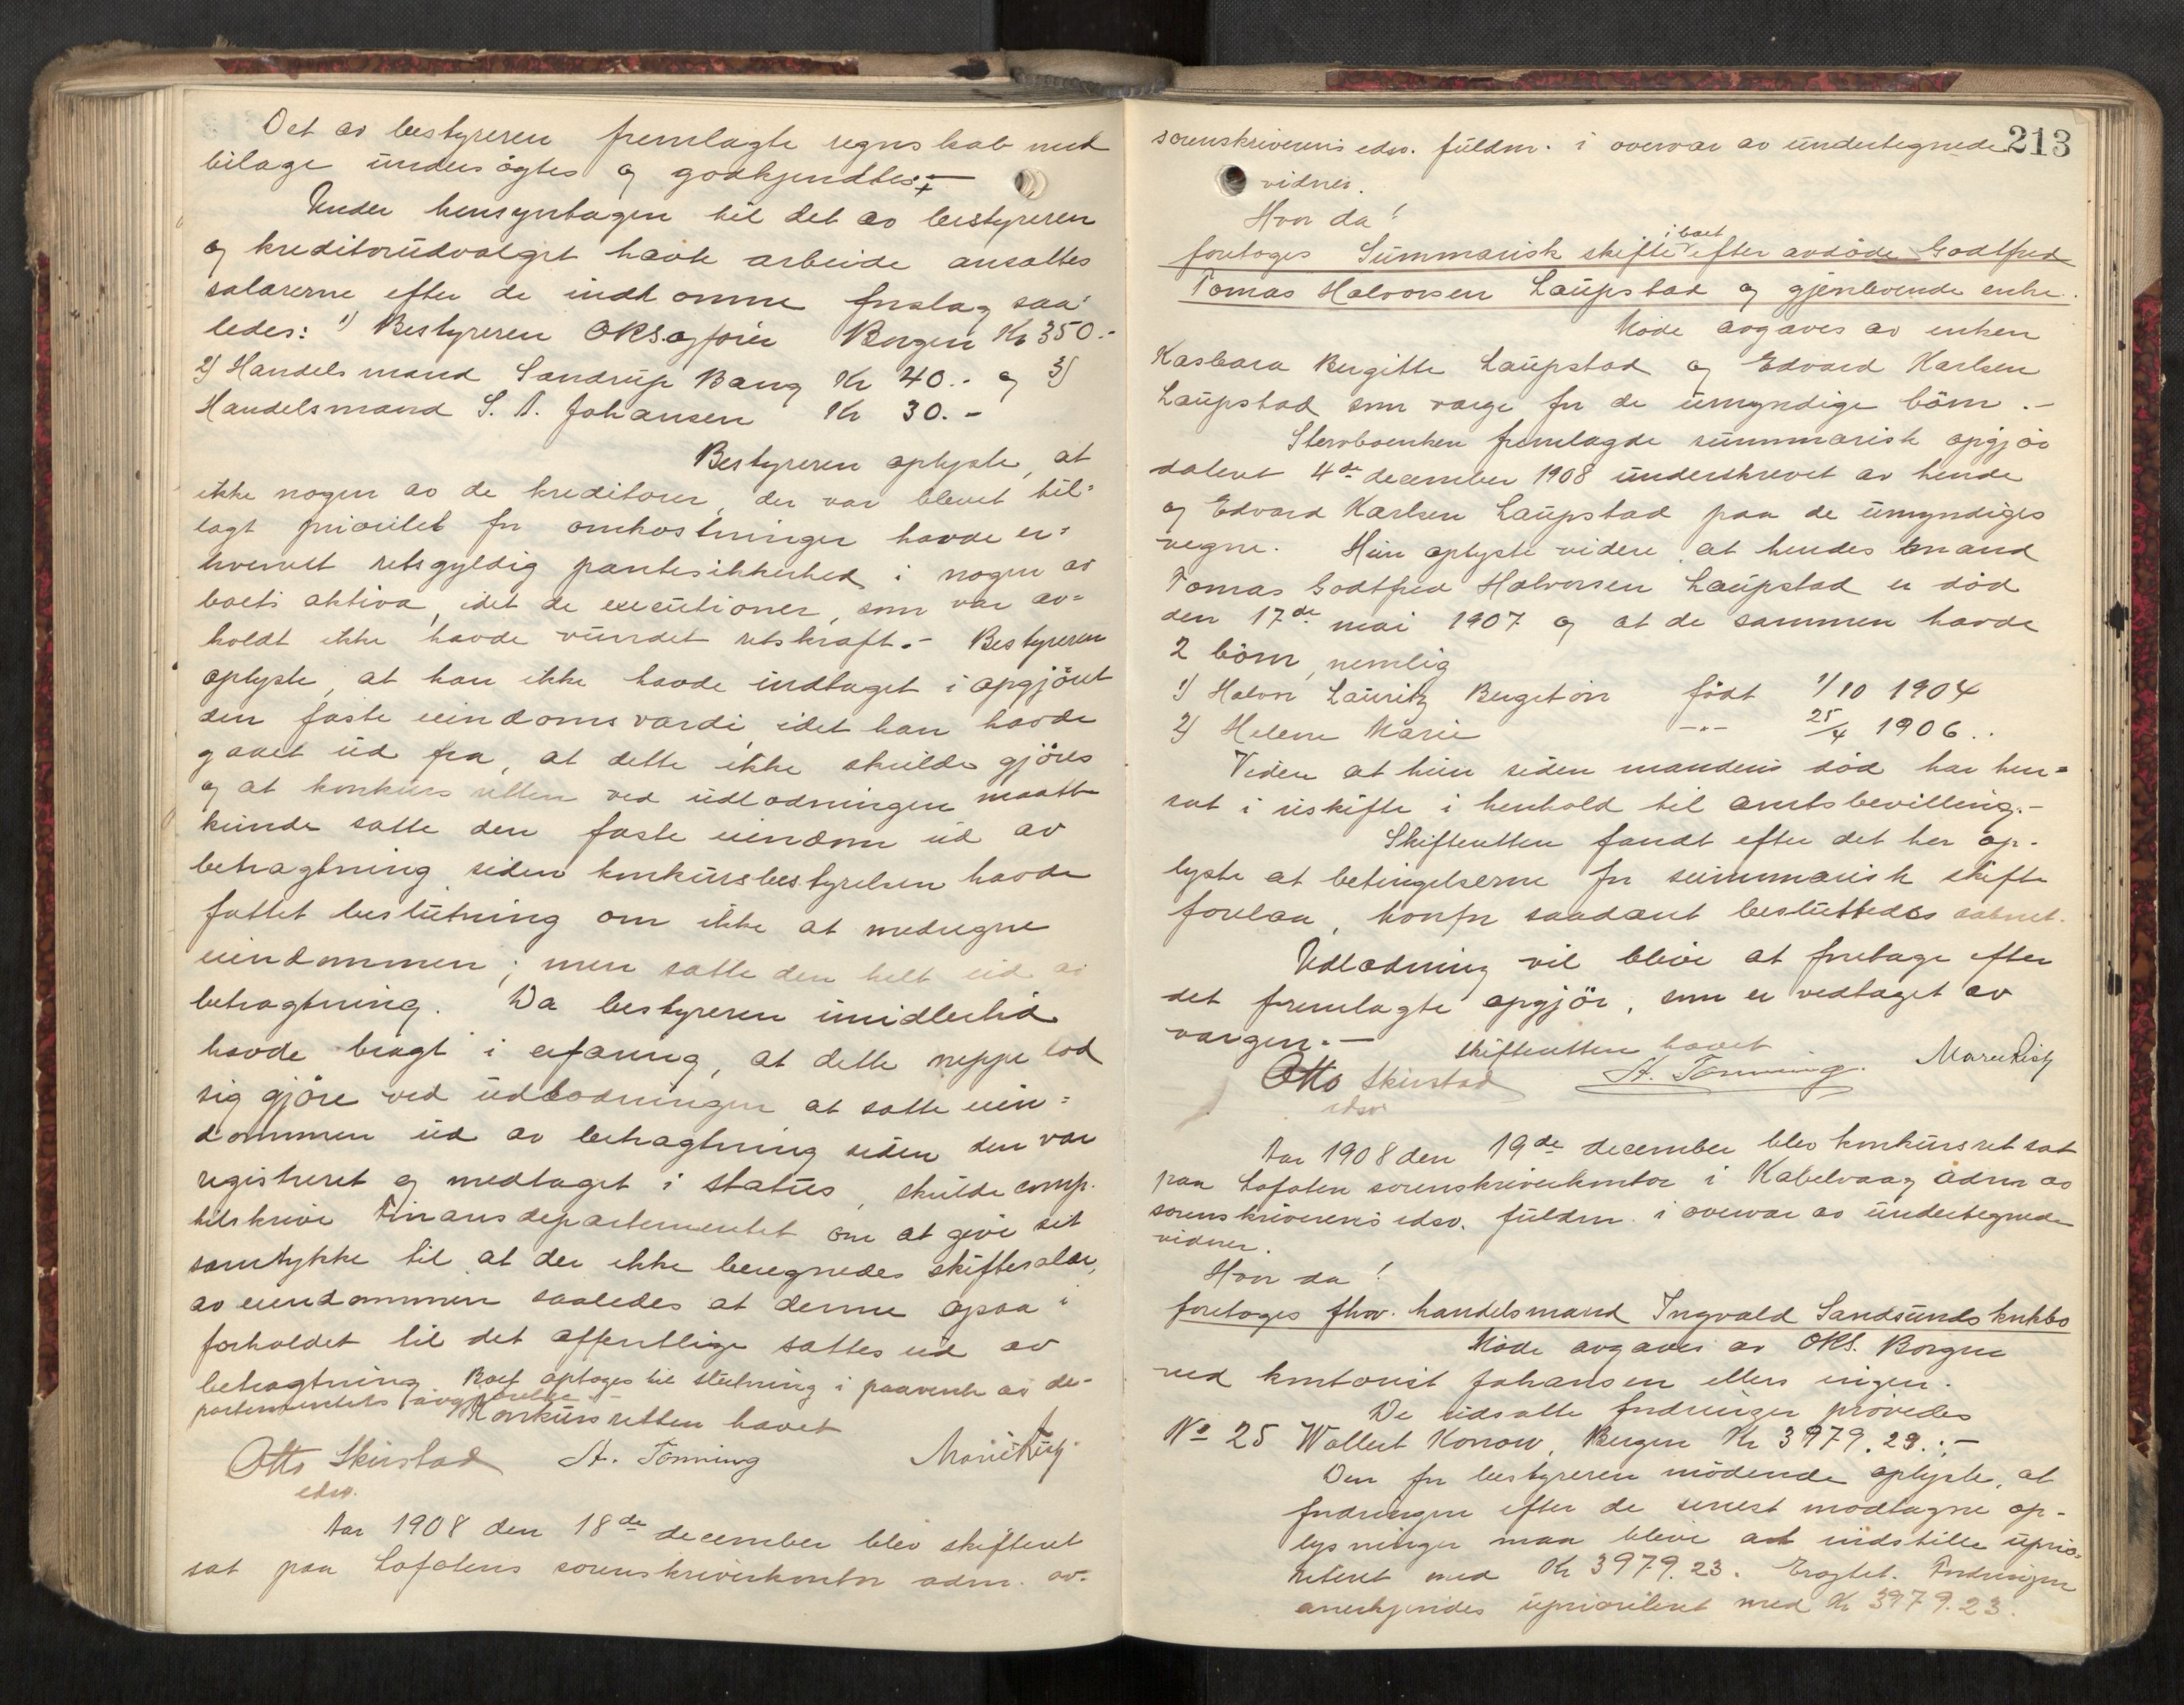 Det av bestyreren fremlagte regnskab med
bilage undersøgtes og godkjendtes.-
Under hensyntagen til det av bestyreren
og kreditorudvalget havte arbeide ansattes
salærerne efter de indkomne forslag saa=
ledes: 1) Bestyreren ORSagfører Borgen Kr 350.-
2) Handelsmand Sandrup Bang Kr 40.- og 3)
Handelsmand S. A. Johansen Kr 30.-
Bestyreren oplyste, at
ikke nogen av de kreditorer, der var blevet til=
lagt prioritet for omkostninger havde er=
hvervet retsgyldig pantesikkerhed i nogen av
boets aktiva, idet de executioner, som var av=
holdt ikke havde vundet retskraft.- Bestyreren
oplyste, at han ikke havde indtaget i opgjøret
den faste eiendomsværdi, idet han havde
gaaet ud fra, at dette ikke skulde gjöres
og at konkursretten ved udlodningen maatte
kunde sætte den faste eiendom ud av
betragtning siden konkursbestyrelsen havde
fattet beslutning om ikke at medregne
eiendommen; men sætte den helt ud av
betragtning. Da bestyreren imidlertid
havde bragt i erfaring, at dette neppe lod
sig gjöre ved udlodningen at sætte eien=
dommen ud av betragtning siden den var
registreret og medtaget i status, skulde comp.
tilskrive Finansdepartementet om at give sit
samtykke til at der ikke beregnedes skiftesalær,
av eiendommen saaledes at denne ogsaa i
forholdet til det offentlige sattes ud av
betragtning Boet optoges til slutning i paavente av de-
partementets avgjørelse.-
Konkursretten hævet
Otto Skirstad A. Tønning Marie Risty
edsv.
Aar 1908 den 18de december blev skifteret
sat paa Lofotens sorenskriverkontor adm. av-
213
sorenskriverens edsv. fuldm. i overvær av undertegnede
vidner.
Hvor da!
i boet
foretoges Summarisk skifte efter avdöde Godtfred
Tomas Halvorsen Laupstad og gjenlevende enke.
Möde avgaves av enken
Kasbara Bergitte Laupstad og Edvard Karlsen
Laupstad som værge for de umyndige börn.-
Stervboenken fremlagde summarisk opgjör
dateret 4de december 1908 underskrevet av hende
og Edvard Karlsen Laupstad paa de umyndiges
vegne. Hun oplyste videre at hendes mand
Tomas Godtfred Halvorsen Laupstad er död
den 17de mai 1907 og at de sammen havde
2 börn, nemlig
1) Halvor Lauritz Bergeton födt 1/10 1904
2) Helene Marie -"- 25/4 1906..
Videre at hun siden mandens död har hen=
sat i uskifte i henhold til amtsbevilling.-
Skifteretten fandt efter det her op-
lyste at betingelserne for summarisk skifte
forelaa, hvorfor saadant besluttedes aabnet.
Udlodning vil blive at foretage efter
det fremlagte opgjör, som er vedtaget av
værgen.-
Skifteretten hævet
Otto Skirstad A. Tønning. Marie Risty
edsv
Aar 1908 den 19de december blev konkursret sat
paa Lofoten sorenskriverkontor i Kabelvaag adm av
sorenskriverens edsv. fuldm. i overvær av undertegnede
vidner.
Hvor da!
foretoges fhv. handelsmand Ingvald Sandsunds knkbo
Möde avgaves av ORS. Borgen
ved kontorist Johansen ellers ingen.
De udsatte fordringer prövedes
No 25 Wollert Konow, Bergen Kr 3979.23.:-
Den for bestyreren mödende oplyste, at
fordringen efter de senest modtagne op-
lysninger maa blive at indstille uprio-
riteret med Kr 3979.23. Eragtet. Fordringen
anerkjendes uprioriteret med Kr 3979.23.